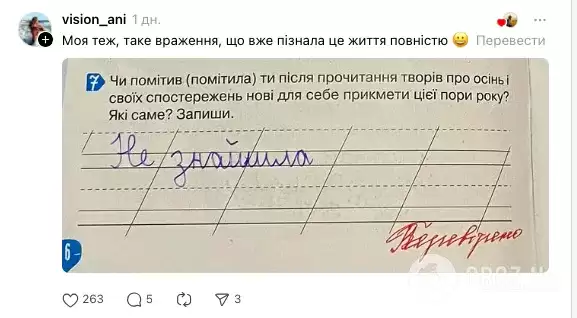 vision_ani 1 дн.
Моя теж, таке враження, що вже пізнала це життя повністю 😀 Перевести
7 Чи помітив (помітила) ти після прочитання творів про осінь і
своїх спостережень нові для себе прикмети цієї пори року?
Які саме? Запиши.
Не знайшла
Перевірено
6
263 5 3